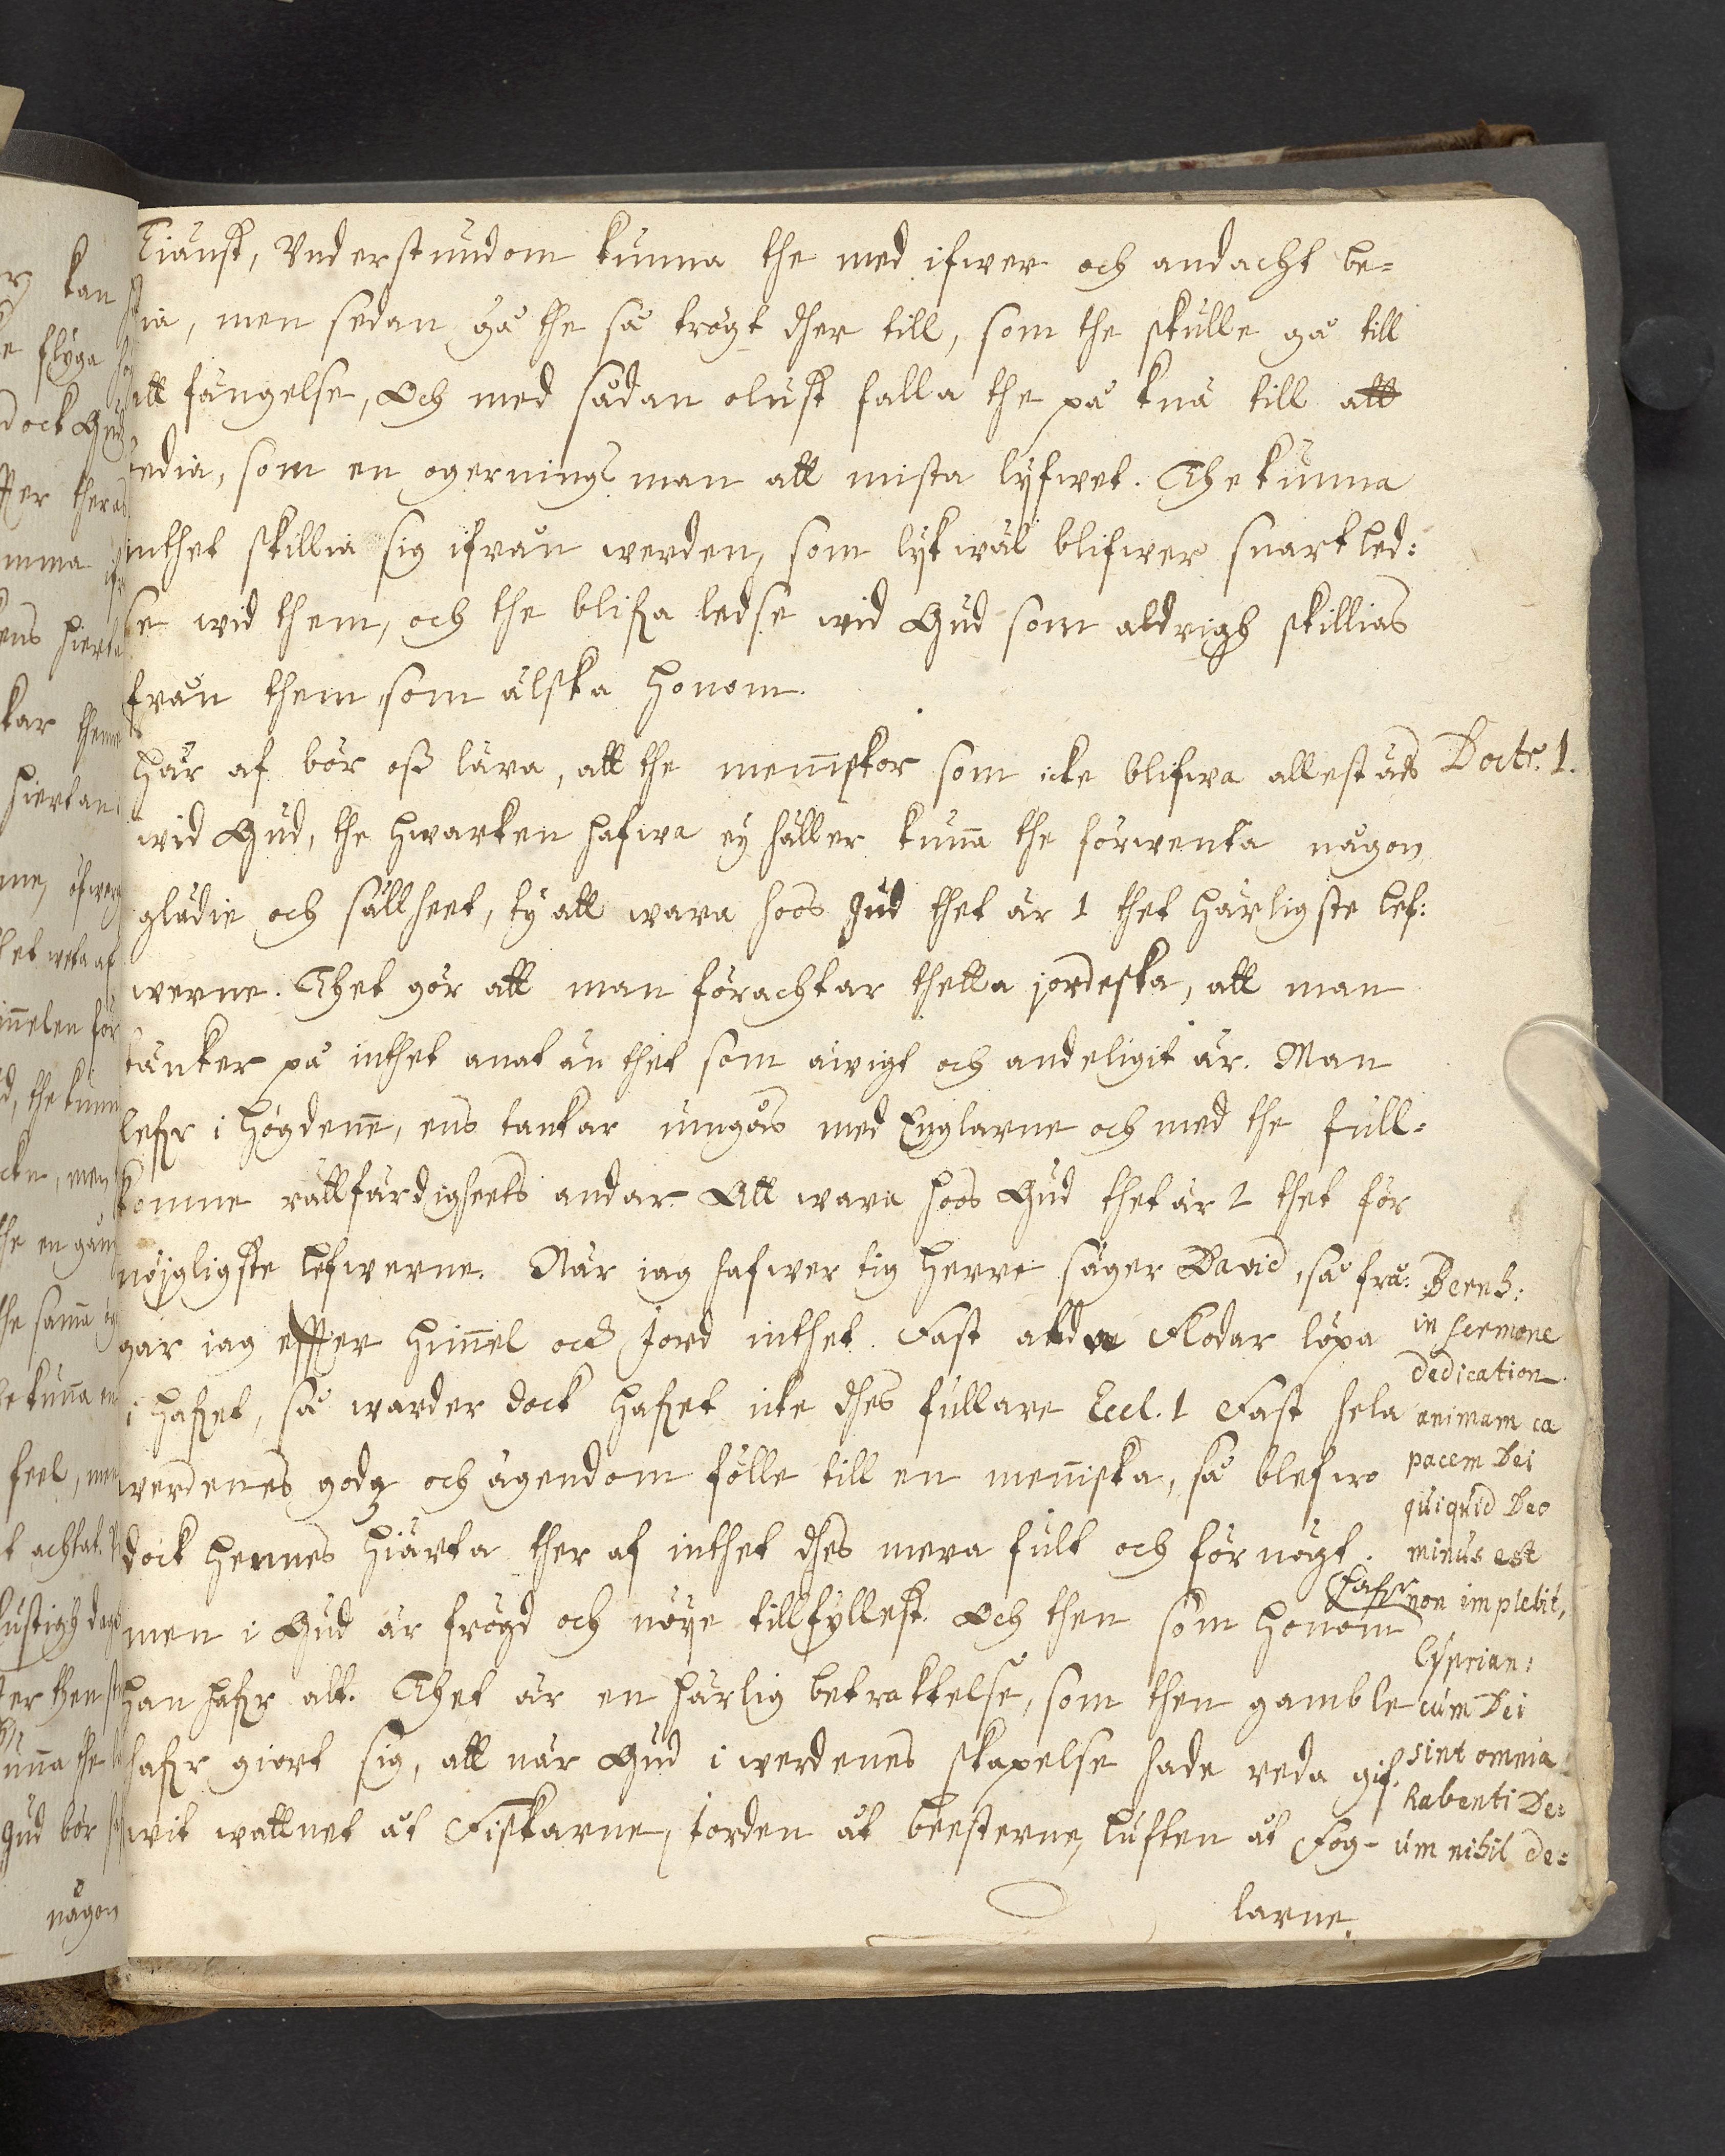 Tiänst, Vnderstundom kunna the med ifwer och andacht be-
dia, men sedan gå the så trögt dher till, som the skulle gå till
ett fängelse, Och med sådan olust falla the på knä till att
bedia, som en ogernings man att mista lyfwet. The kunna
inthet skillia sig ifrån werden, som lykwäl blifwer snart led:
se wid them, och the blifva ledse wid Gud som aldrigh skillias
från them som älska honom.
Här af bör oss lära, att the menniskor som icke blifwa allestäds
wid Gud, the hwarken hafwa ey häller kunna the förwenta någon
glädie och sällheet, ty att wara hoos Gud thet är 1 thet härligste lef:
werne. Thet gör att man förachtar thetta jordeska, att man
tänker på inthet anat än thet som äwigt och andeligit är. Man
lefver i högdenne, ens tankar umgås med Englarne och med the full-
komne rättfärdigheets andar. Att wara hoos Gud thet är 2 thet för
nöjgligste lefwerne. När iag hafwer tig Herre säger David, så frå:
gar iag effter himmel och Jord inthet. Fast Flodar löpa
i hafvet, så warder dock hafvet icke dhes fullare Eccl. 1 Fast hela
werdenes godz och ägendom fölle till en menniska, så blefwo
dock hennes hiärta ther af inthet dhes mera fult och förnögt.
men i Gud är frögd och nöye tillfyllest. Och then som honom hafver
han hafver alt. Thet är en härlig betraktelse, som then gamble
hafver giort sig, att när Gud i werdenes skapelse hade reda gif:
wit wattnet åt Fiskarne, Jorden åt beesterne, luften åt Fog-
larne.
Doctr. 1.
Bernh:
in sermone
dedication.
animam ca
pacem Dei
quiquid Deo
minus est
non implebit,
Cyprian:
cum Dei
sint omnia
habenti De:
um nihil de: